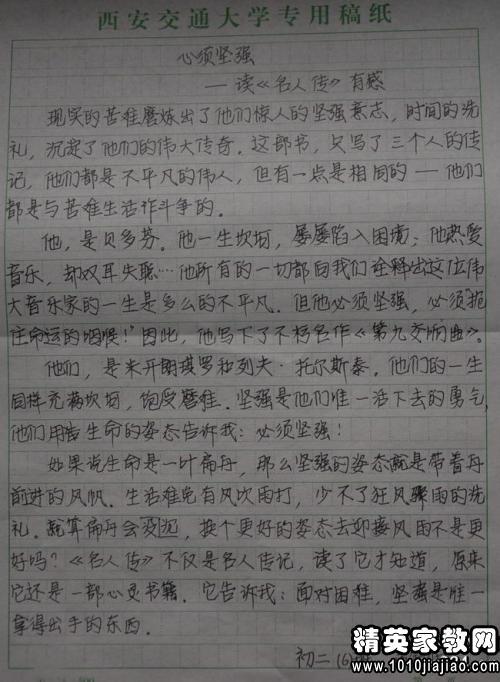 西安交通大学专用稿纸
心须坚强
— 读《名人传》有感
现实的苦难磨炼出了他们惊人的坚强意志，时间的洗
礼，沉淀了他们的伟大传奇。这部书，只写了三个人的传
记，他们都是不平凡的伟人，但有一点是相同的 — 他们
都是与苦难生活作斗争的。
他，是贝多芬。他一生坎坷，屡屡陷入困境；他热爱
音乐，却双耳失聪…他所有的一切都向我们诠释出这位伟
大音乐家的一生是多么的不平凡。但他必须坚强，必须"扼
住命运的咽喉！"因此，他写下了不朽名作《第九交响曲》。
他们，是米开朗琪罗和列夫·托尔斯泰。他们的一生
同样充满坎坷，饱受磨难。坚强是他们唯一活下去的勇气，
他们用着生命的姿态告诉我：必须坚强！
如果说生命是一叶扁舟，那么坚强的姿态就是带着舟
前进的风帆。生活难免有风吹雨打，少不了狂风骤雨的洗
礼。就算扁舟会没迹，换个更好的姿态去迎接风雨不是更
好吗？《名人传》不仅是名人传记，读了它才知道，原来
它还是一部心灵书籍。它告诉我：面对困难，坚强是唯一
拿得出手的东西。
初二(6)
精英家教网
www.1010jiajiao.com